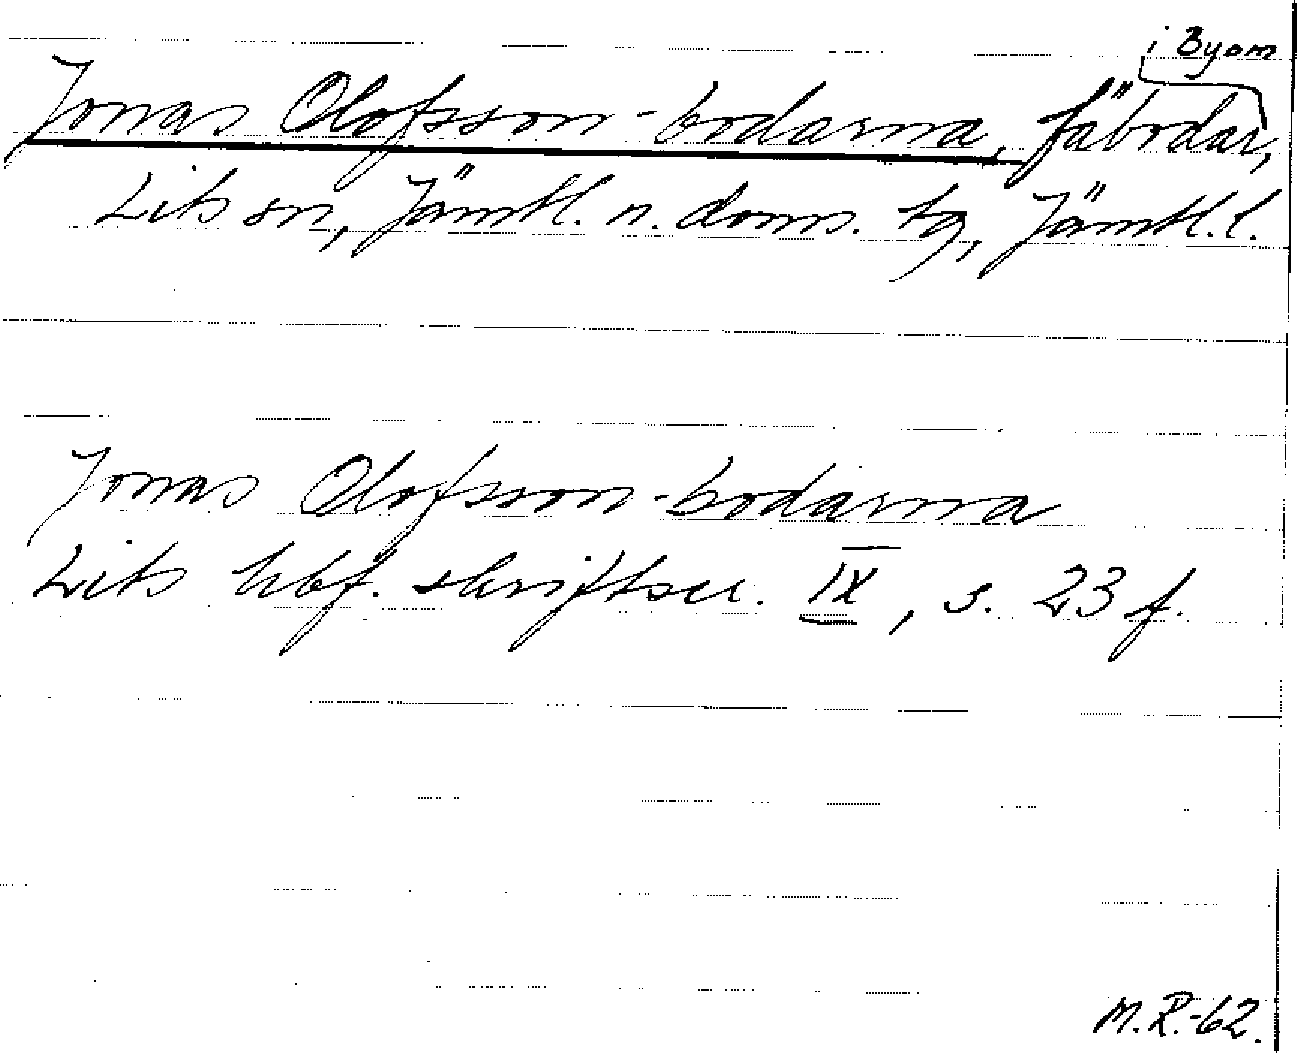 i Byom
Jonas Olofsson-bodarna, fäbodar,
Lits sn, Jämtl. n. doms. tg, Jämtl. l.
Jonas Olofsson-bodarna
Lits hbf. skriftser. IX, s. 23 f.
M.R.-62.